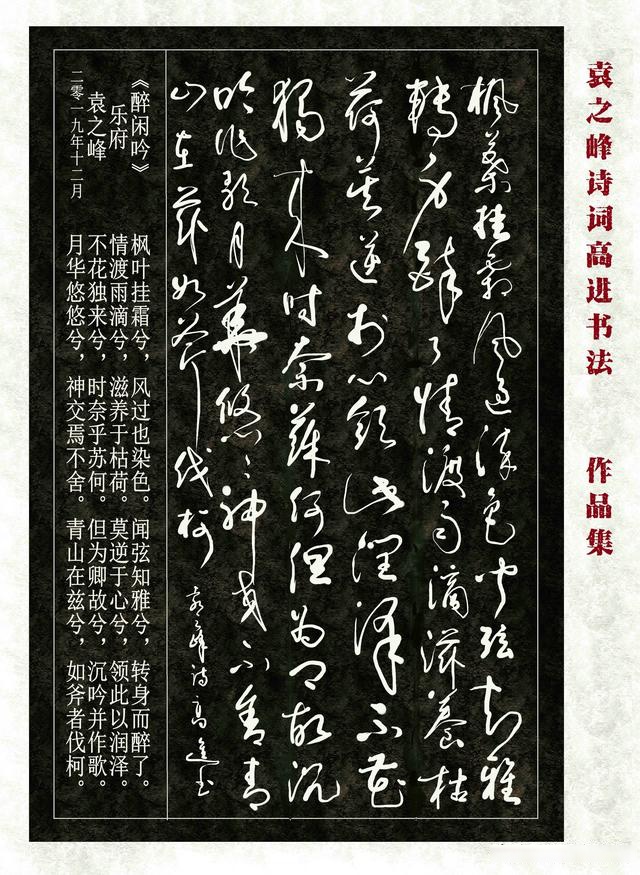 袁之峰诗词高进书法 作品集
枫葉挂霜风過染色闻弦知雅
轉身醉了情渡雨滴滋養枯
荷莫逆於心领此润泽不花
獨来时奈蘇何但为卿故沉
吟作歌月華悠悠神交不舍青
山在兹如斧伐柯
袁峰诗高進书
《醉闲吟》
乐府
袁之峰
二零一九年十二月
枫叶挂霜兮，风过也染色。闻弦知雅兮，转身而醉了。
情渡雨滴兮，滋养于枯荷。莫逆于心兮，领此以润泽。
不花独来兮，时奈乎苏何。但为卿故兮，沉吟并作歌。
月华悠悠兮，神交焉不舍。青山在兹兮，如斧者伐柯。